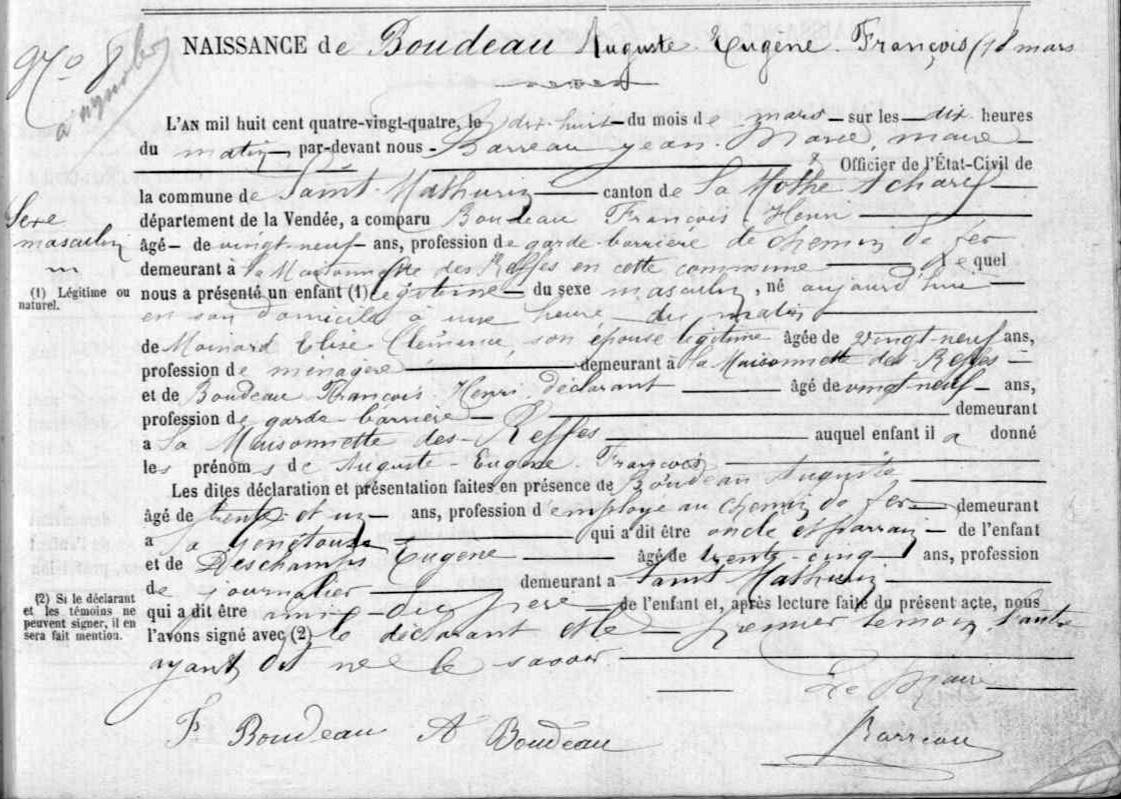 No 8
NAISSANCE de Boudeau Auguste Eugène François (18 mars
L'AN mil huit cent quatre-vingt-quatre, le dix huit du mois de mars sur les dix heures
du matin, par-devant nous Barreau Jean Marie, maire
Officier de l'État-Civil de
la commune de Saint Mathurin canton de La Mothe Achard
Sexe
masculin
département de la Vendée, a comparu Boudeau François Henri
âgé de vingt-neuf ans, profession de garde barrière de chemin de fer
demeurant à la Maisonnette des Reffes en cette commune lequel
(1) Légitime ou
naturel.
nous a présenté un enfant (1) légitime du sexe masculin, né aujourd'hui
en son domicile à une heure du matin
de Moinard Elise Clémence, son épouse légitime âgée de vingt-neuf ans,
profession de ménagère demeurant à la Maisonnette des Reffes
et de Boudeau François Henri déclarant âgé de vingt neuf ans,
profession de garde barrière demeurant
a La Maisonnette des Reffes auquel enfant il a donné
les prénoms de Auguste Eugène François
Les dites déclaration et présentation faites en présence de Boudeau Auguste
âgé de trente et un ans, profession d'employé au chemin de fer demeurant
a La qui a dit être oncle et parrain de l'enfant
et de Deschamps Eugène âgé de trente-cinq ans, profession
de journalier demeurant a Saint Mathurin
(2) Si le déclarant
et les témoins ne
peuvent signer, il en
sera fait mention.
qui a dit être amie du père de l'enfant et, après lecture faite du présent acte, nous
l'avons signé avec (2) le déclarant et le premier témoin, l'autre
ayant dit ne le savoir
Le Maire
Fs Boudeau A Boudeau Barreau